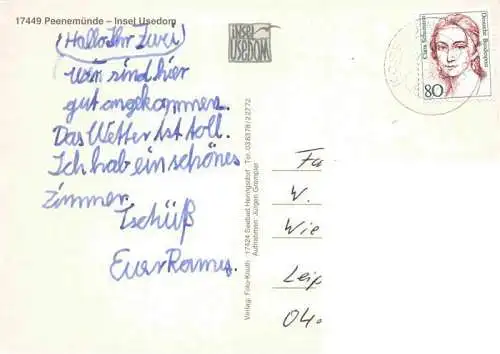 17449 Peenemünde – Insel Usedom
Hallo Ihr Zwei
wir sind hier
gut angekommen.
Das Wetter ist toll.
Ich hab ein schönes
Zimmer.
Tschüß
Euer
INSEL
USEDOM
Verlag: Foto-Knuth · 17424 Seebad Heringsdorf · Tel. 038378/22772
Aufnahmen: Jürgen Grempler
Clara Schumann
Deutsche Bundespost
80
Fa
W.
Wie
Leip
04